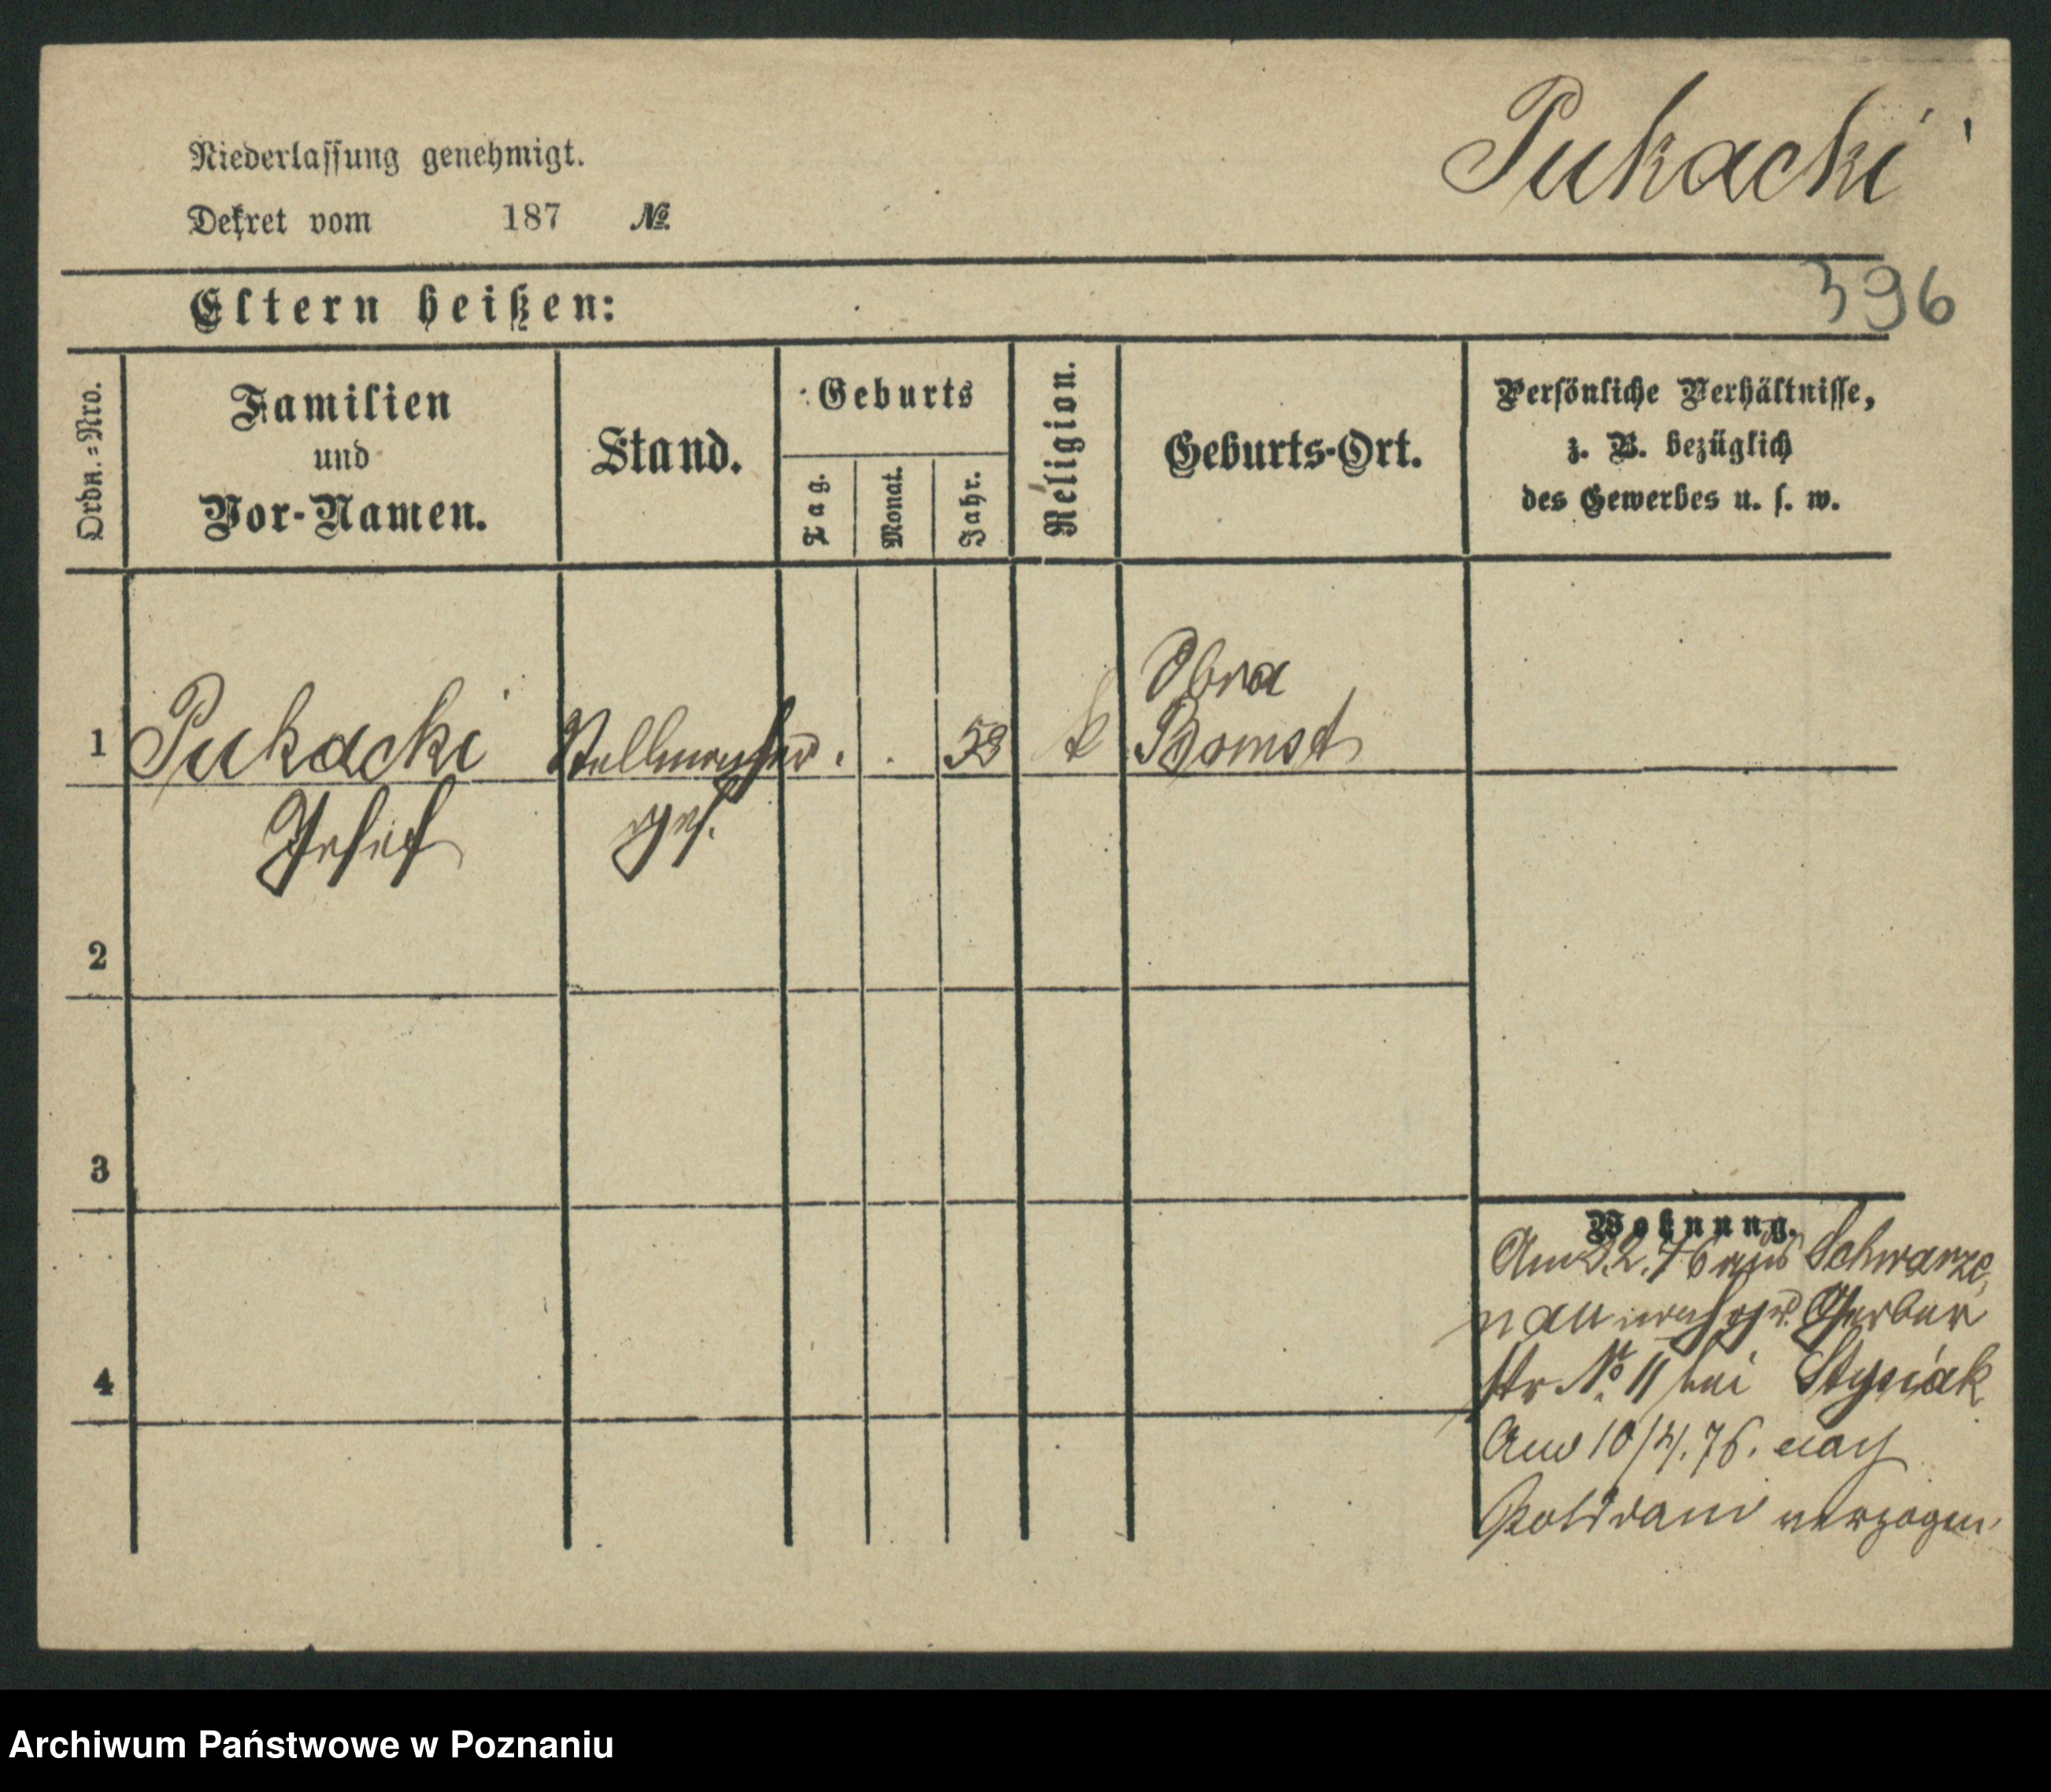 Pukacki
Niederlassung genehmigt.
Dekret vom 187 №
396
Eltern heißen:
Ordn.=Nro.
Familien
und
Vor-Namen.
Stand.
Geburts
Tag.
Monat.
Jahr.
Religion.
Geburts-Ort.
Persönliche Verhältnisse,
z. B. bezüglich
des Gewerbes u. s. w.
Obra
1 Pukacki Stellmacher . . 53 k Bomst
Josef ges.
2
3
Wohnung.
Am 2.2.76 aus Schwarze
nau Gerber
4
str № 11 bei Stysiak
Am 10/4.76. nach
Potsdam verzogen.
Archiwum Państwowe w Poznaniu